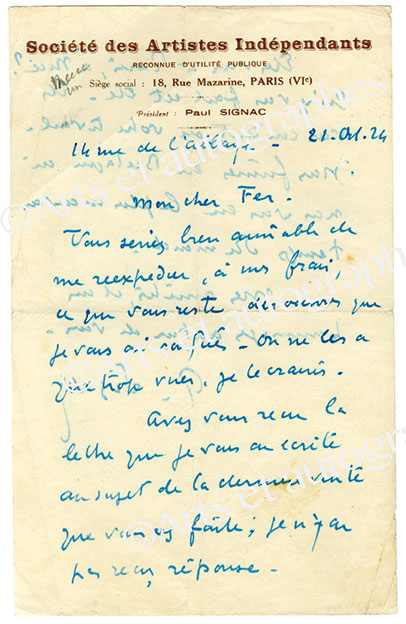 Société des Artistes Indépendants
RECONNUE D'UTILITÉ PUBLIQUE
Siège social : 18, Rue Mazarine, PARIS (VIe)
Président : Paul SIGNAC
14 rue de l'abbaye - 21. Oct. 24
Mon cher Fer.
Vous seriez bien aimable de
me reexpedier, à nos frais,
ce que vous reste des oeuvres que
je vous ai confiés - On ne les a
que trop vues, je le crains.
Avez vous recu la
lettre que je vous ai écrite
au sujet de la derniere vente
que vous avez faite ; je n'ai
pas reçu réponse -